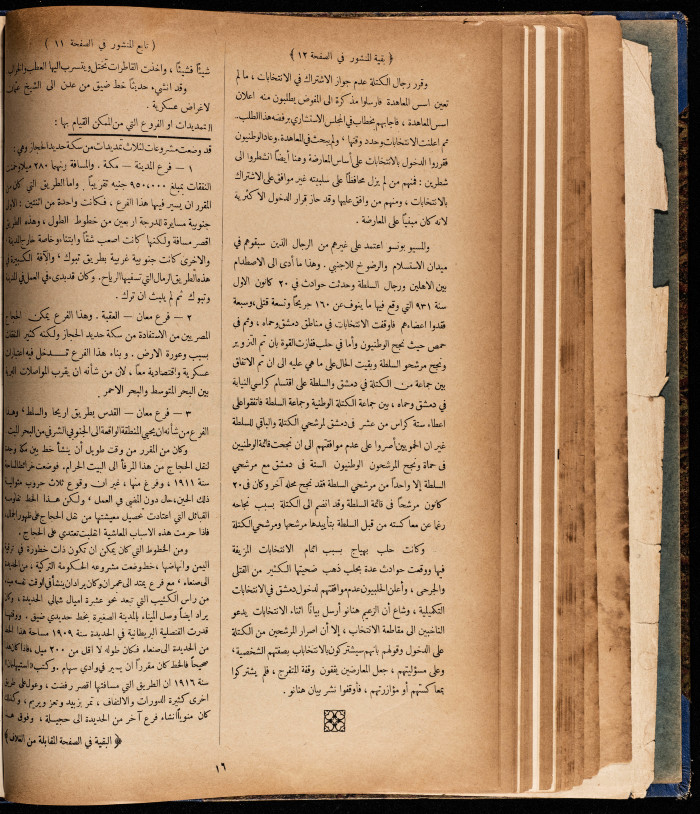 ﴿ بقية المنشور في الصفحة ١٢ ﴾
وقور رجال الكتلة عدم جواز الاشتراك في الانتخابات ، ما لم
تعين اسس المعاهدة فارسلوا مذكرة الى المفوض يطلبون منه اعلان
اسس المعاهدة ، فاجابهم بخطاب في المجلس الاستشاري برفضه هذا الطلب..
ثم اعلنت الانتخابات وحدد وقتها ، ولم يبحث في المعاهدة. وعاد الوطنيون
فقرروا الدخول بالانتخابات على أساس المعارضة وهنا أيضاً انشطروا الى
شطرين : فمنهم من لم يزل محافظاً على سلبيته غير موافق على الاشتراك
بالانتخابات ، ومنهم من وافق عليها وقد حاز قرار الدخول الاكثرية
لانه كان مبنياً على المعارضة .
والمسيو بونسو اعتمد على غيرهم من الرجال الذين سبقوهم في
ميدان الاستسلام والرضوخ للاجنبي . وهذا ما أدى الى الاصطدام
بين الاهلين ورجال السلطة وحدثت حوادث في ٢٠ كانون الاول
سنة ٩٣١ التي وقع فيها ما ينوف عن ١٦٠ جريحاً وتسعة قتلى، وسبعة
فقدوا اعضاءهم فاوقفت الانتخابات في مناطق دمشق وحماه ، وتم في
حمص حيث نجح الوطنيون وأما في حلب ففازت القوة بان تم التزوير
ونجح مرشحو السلطة وبقيت الحال على ما هي عليه الى ان تم الاتفاق
بين جماعة من الكتلة في دمشق والسلطة على اقتسام كراسي النيابة
في دمشق وحماه ، بين جماعة الكتلة الوطنية وجماعة السلطة فاتفقوا على
اعطاء ستة كراس من عشر في دمشق لمرشحي الكتلة والباقي للسلطة
غير ان الحمويين أصروا على عدم موافقتهم الى ان نجحت قائمة الوطنيين
في حماة ونجح المرشحون الوطنيون الستة في دمشق مع مرشحي
السلطة إلا واحداً من مرشحي السلطة فقد نجح محله آخر وكان في ٢٠
كانون مرشحاً في قائمة السلطة وقد انضم الى الكتلة بسبب نجاحه
رغما عن معاكسته من قبل السلطة بتأييدها مرشحها ومرشحي الكتلة
وكانت حلب بهياج بسبب اتمام الانتخابات المزيفة
فيها ووقعت حوادث عدة بحلب ذهب ضحيتها الكثير من القتلى
والجرحى ، وأعلن الحلبيون عدم موافقتهم لدخول دمشق في الانتخابات
التكميلية ، وشاع أن الزعيم هنانو أرسل بياناً اثناء الانتخابات يدعو
الناخبين الى مقاطعة الانتخاب ، إلا أن اصرار المرشحين من الكتلة
على الدخول وقولهم بانهم سيشتركون بالانتخاب بصفتهم الشخصية،
وعلى مسؤليتهم ، جعل المعارضين يقفون وقفة المتفرج ، فلم يشتركوا
بمعاكستهم أو مؤازرتهم ، فأوقفوا نشر بيان هنانو .
( تابع المنشور في الصفحة ١١ )
شيئاً فشيئاً ، واخذت القاطرات تختل ويتسرب اليها العطب والخراب
وقد انشيء حديثاً خط ضيق من عدن الى الشيخ عثمان
لاغراض عسكرية .
التمديدات او الفروع التي من الممكن القيام بها :
قد وضعت مشروعات لثلاث تمديدات من سكة حديد الحجاز وهي :
١ — فرع المدينة — مكة . والمسافة بينهما ٢٨٠ ميلا وخمنت
النفقات بمبلغ ٩٥٠،٠٠٠ جنيه تقريباً . واما الطريق التي كان من
المقرر ان يسير فيها هذا الفرع ، فكانت واحدة من اثنتين : الاولى
جنوبية مسايرة للدرجة اربعين من خطوط الطول ، وهذه الطريق
اقصر مسافة ولكنها كانت اصعب شقاً وابتناء وخاصة خارج المدينة
والاخرى كانت جنوبية غربية بطريق تبوك ، والآفة الكبيرة في
هذه الطريق الرمال التي تسفيها الرياح. وكان قد بدى، في العمل في المدينة
وتبوك ثم لم يلبث ان ترك .
٢ — فرع معان — العقبة . وهذا الفرع يمكن الحجاج
المصريين من الاستفادة من سكة حديد الحجاز ولكنه كثير النفقات
بسبب وعورة الارض . وبناء هذا الفرع تتدخل فيه اعتبارات
عسكرية واقتصادية معاً ، لان من شأنه ان يقرب المواصلات البرية
بين البحر المتوسط والبحر الاحمر .
٣ — فرع معان — القدس بطريق اريحا والسلط، وهذا
الفرع من شأنه ان يحيي المنطقة الواقعة الى الجنوبي الشرقي من البحر الميت
وكان من المقرر من وقت طويل أن ينشأ خط بين مكة وجدة
لنقل الحجاج من هذا المرفأ الى البيت الحرام. فوضعت خرائط لذلك
سنة ١٩١١ ، وفرغ منها ، غير ان وقوع ثلاث حروب متوالية
ذلك الحين، حال دون المضي في العمل ، ولكن هذا الخط تقاومه
القبائل التي اعتادت تحصيل معيشتها من نقل الحجاج على ظهور الجمال،
فاذا حرمت هذه الاسباب المعاشية انقلبت تعتدي على الحجاج .
ومن الخطوط التي كان يمكن ان تكون ذات خطورة في ترقية
اليمن وانهاضها ، خط وضعت مشروعه الحكومة التركية ، من الحديدة
الى صنعاء ، مع فرع يمتد الى عمران وكان يراد ان ينشأ في الوقت نفسه ميناء
من راس الكثيب التي تبعد نحو عشرة اميال شمالي الحديدة ، وكان
يراد ايضاً وصل الميناء بالمدينة الصغيرة بخط حديدي ضيق .
قدرت القنصلية البريطانية في الحديدة سنة ١٩٠٩ مساحة هذا الخط
من الحديدة الى صنعاء فكان طوله لا اقل من ٢٠٠ ميل
صحيحاً فالخط كان مقرراً ان يسير في وادي سهام .
سنة ١٩١٦ ان الطريق التي مسافتها اقصر رفضت ، وعول على طريق
اخرى كثيرة الدورات والالتفاف ، تمر بزبيد وتعز ويريم ،
كان منوياً انشاء فرع آخر من الحديدة الى حجيلة ، وفوق هذا
﴿ البقية في الصفحة المقابلة من الغلاف ﴾
١٦